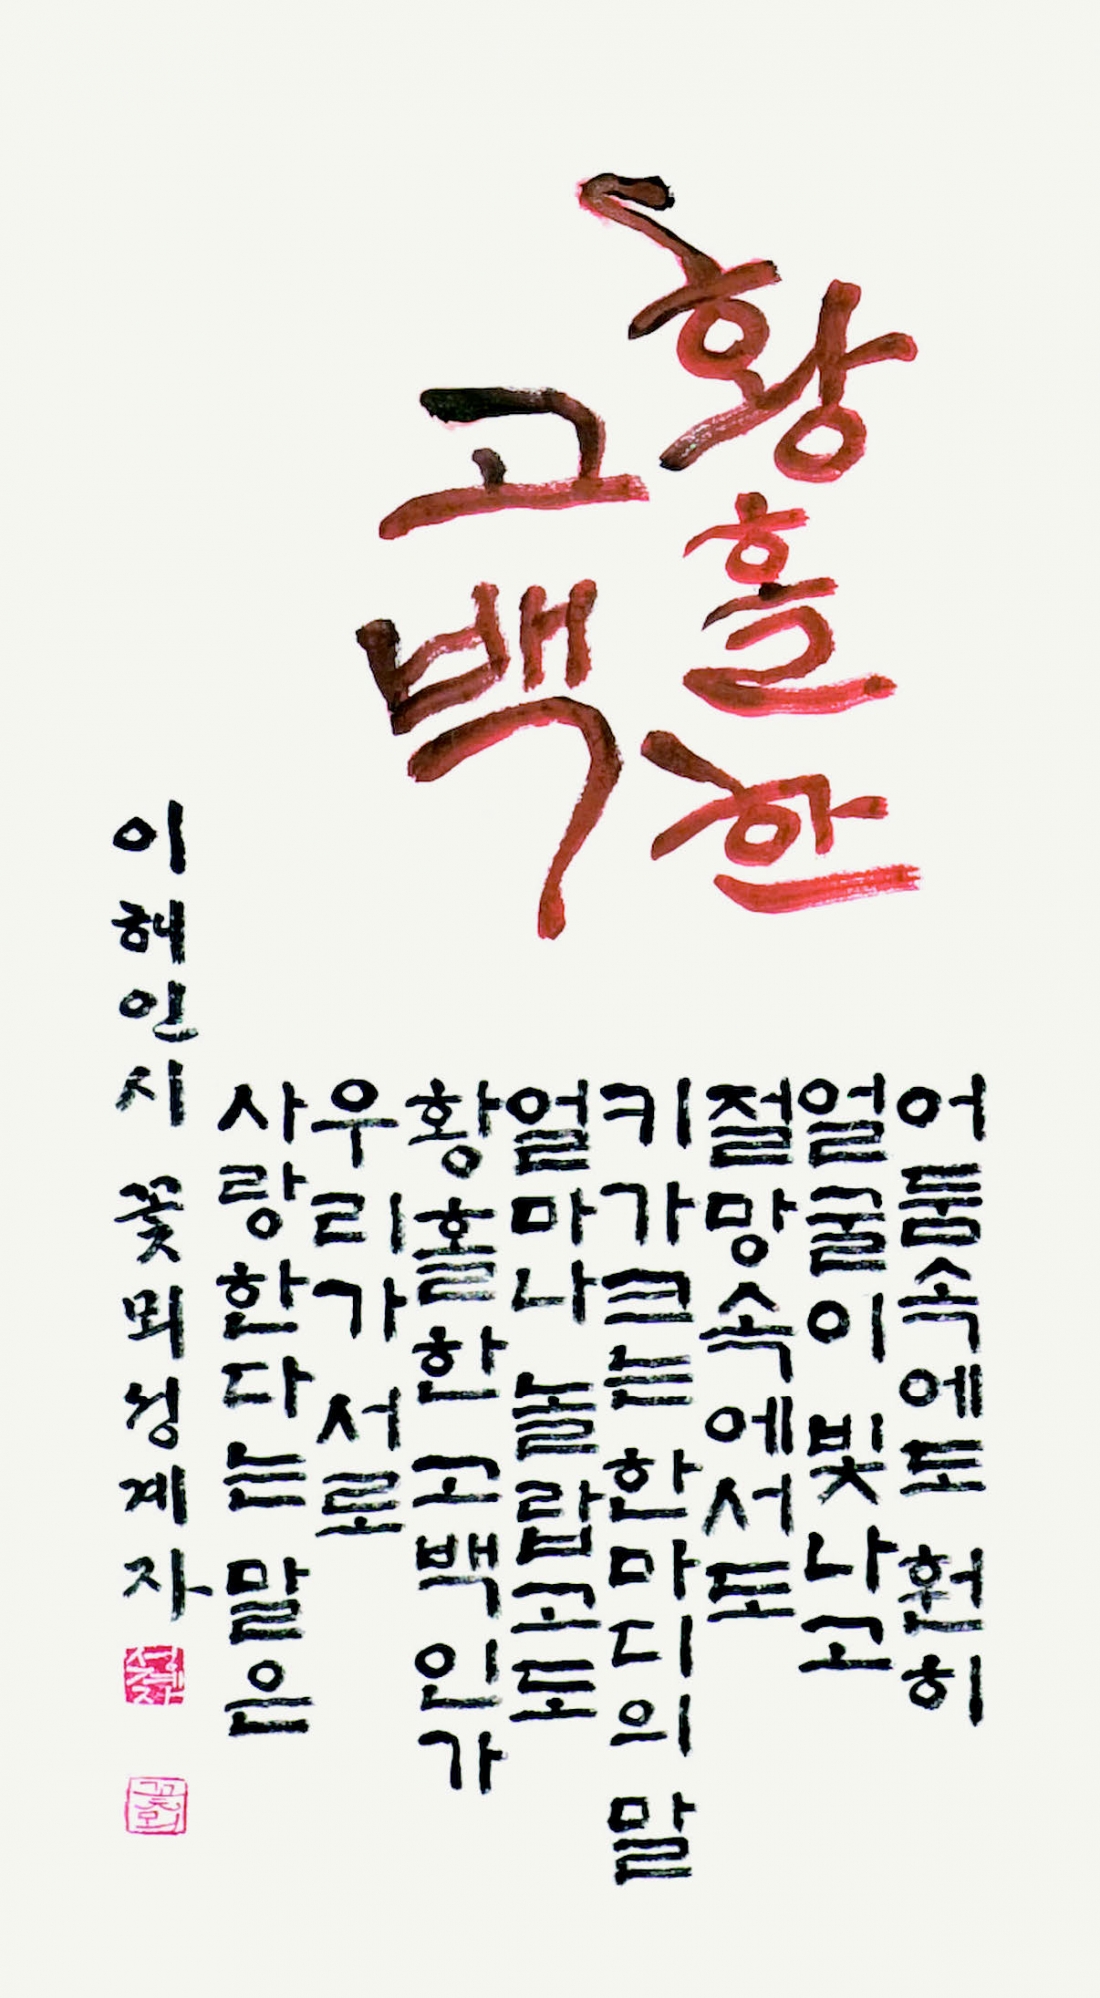 황홀한
고백
어둠속에도 훤히
얼굴이 빛나고
절망속에서도
키가크는 한마디의 말
얼마나 놀랍고도
황홀한 고백인가
우리가 서로
사랑한다는 말은
이해인시 꽃뫼성계자
성계자
꽃뫼